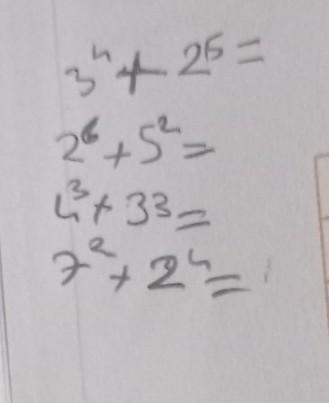 3⁴ + 2⁵ =
2⁶ + 5² =
4³ + 3³ =
7² + 2⁴ =